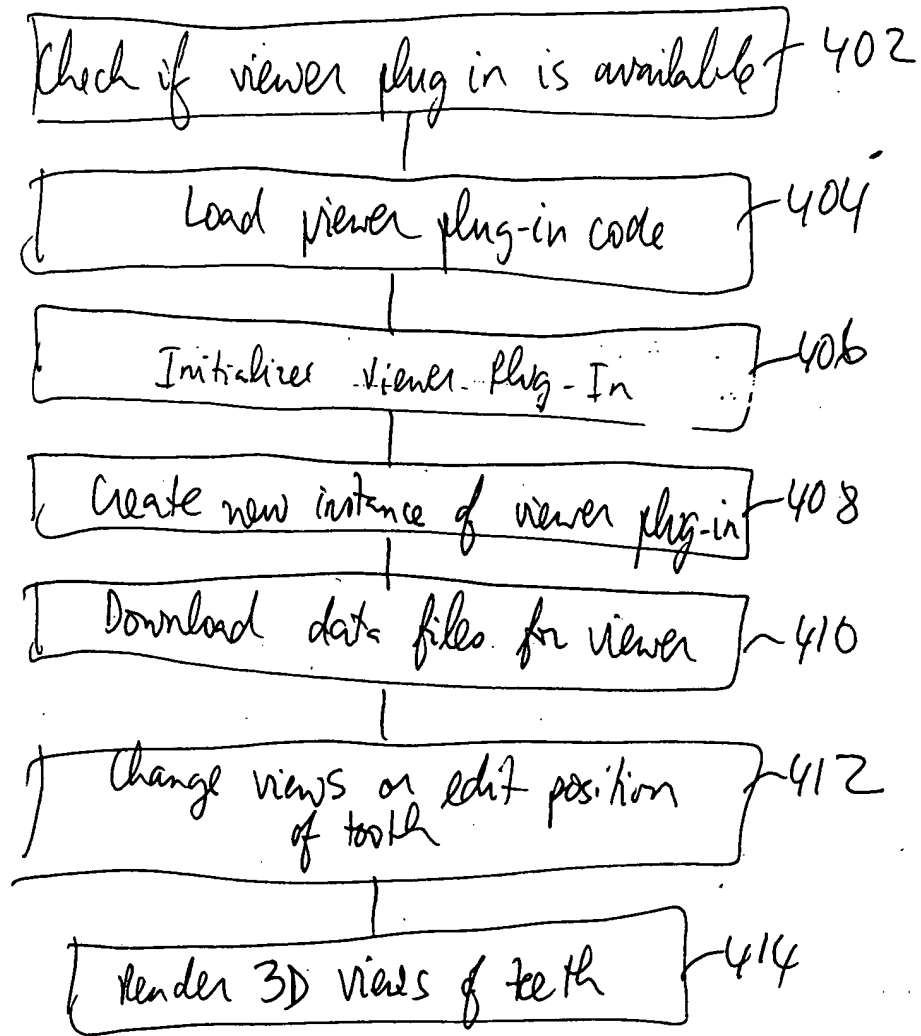 Check if viewer plug in is available 402
Load viewer plug-in code 404
Initializes viewer Plug-In 406
Create new instance of viewer plug-in 408
Download data files for viewer 410
Change views or edit position 412
of tooth
Render 3D views of teeth 414